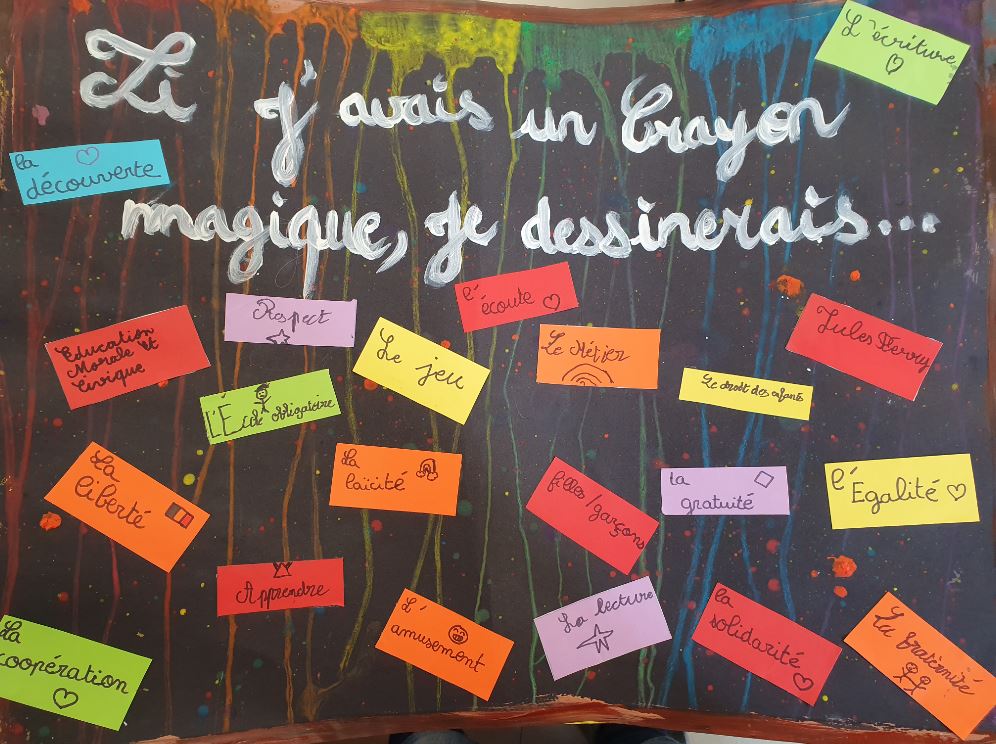 Si
j'avais un Crayon
magique, je dessinerais...
L'écriture
la
découverte
l'
écoute
Respect
Education
Morale et
Civique
Le jeu
Le Métier
Jules Ferry
L'École obligatoire
Le droit des enfants
La
liberté
la
laïcité
filles/garçons
la
gratuité
l'
Égalité
Apprendre
L'
amusement
La lecture
la
solidarité
La fraternité
La
coopération